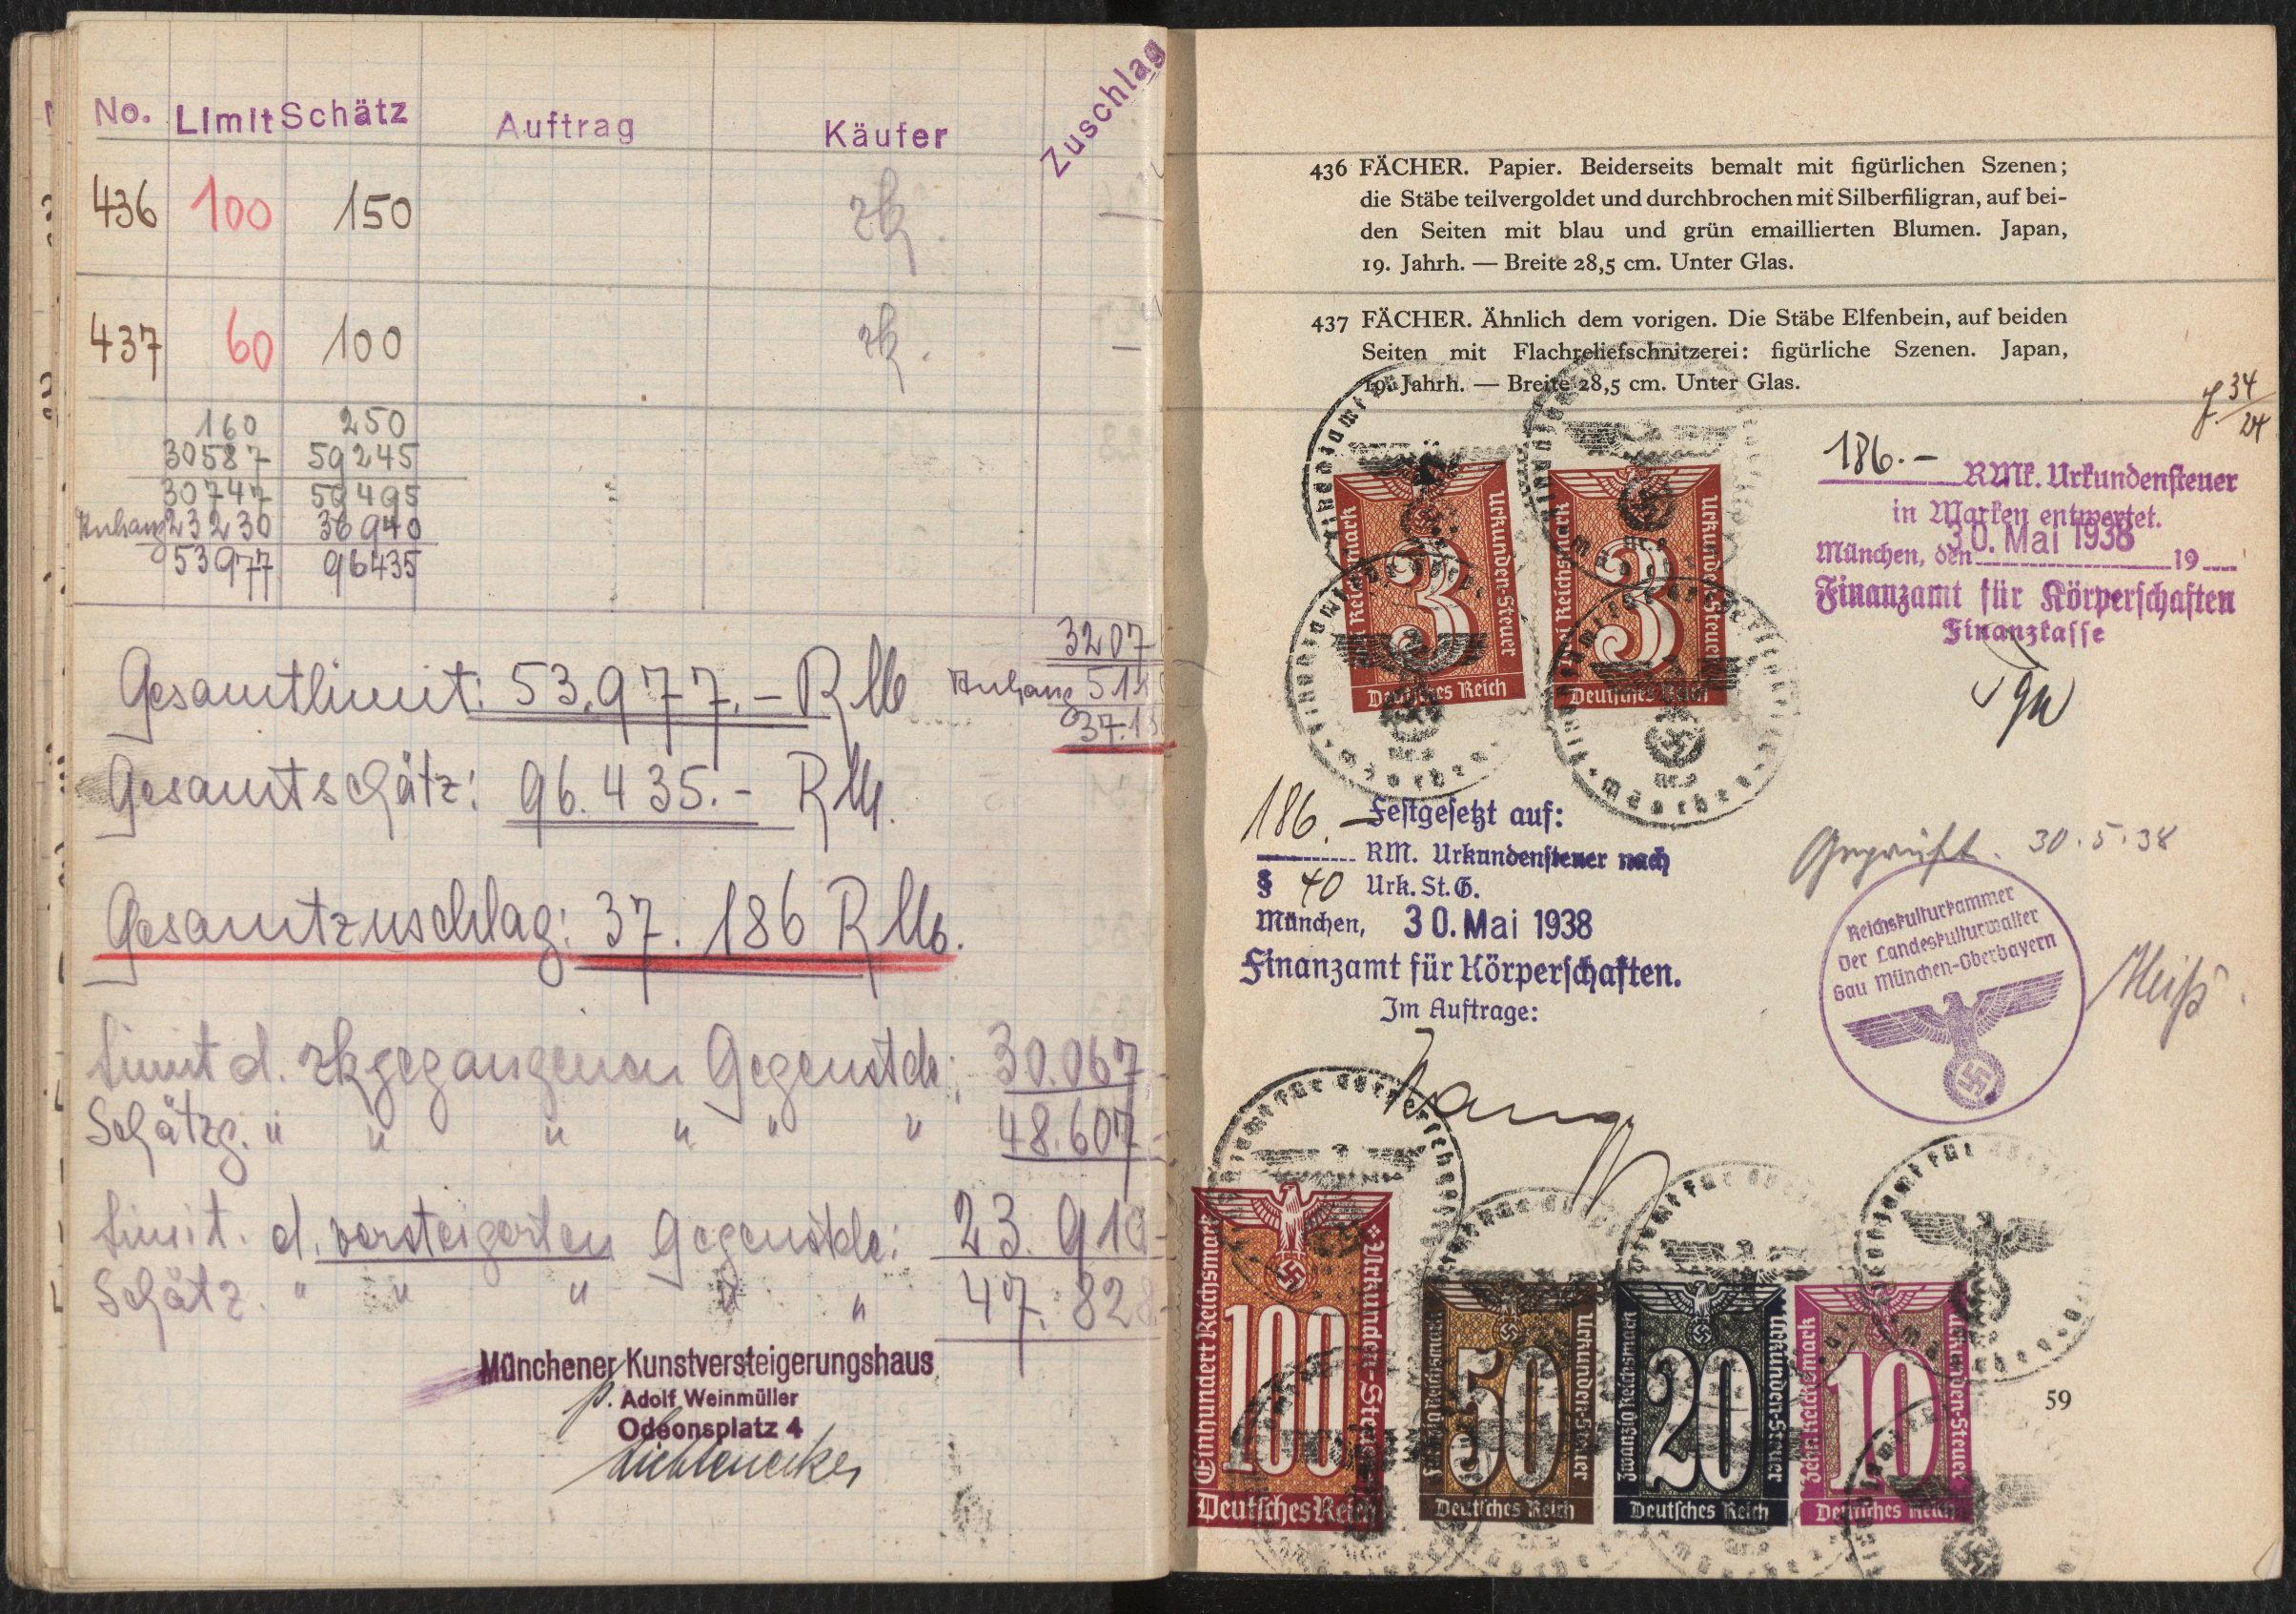 No. Limit Schätz Auftrag Käufer Zuschlag
436 100 150 zk. —
437 60 100 zk. —
160 250
30587 59245
30747 59495
Anhang 23230 36940
53977 96435
3207
Anhang
37.1
Gesamtlimit: 53.977.- RM
Gesamtschätz: 96.435.- RM.
Gesamtzuschlag: 37.186 RM.
Limit d. zkgegangenen Gegenstde: 30.067
Schätzg. " " " " " " 48.607
Limit. d. versteigerten Gegenstde: 23.910
Schätz. " " " " " 47.828
Münchener Kunstversteigerungshaus
p. Adolf Weinmüller
Odeonsplatz 4
436 FÄCHER. Papier. Beiderseits bemalt mit figürlichen Szenen;
die Stäbe teilvergoldet und durchbrochen mit Silberfiligran, auf bei-
den Seiten mit blau und grün emaillierten Blumen. Japan,
19. Jahrh. — Breite 28,5 cm. Unter Glas.
437 FÄCHER. Ähnlich dem vorigen. Die Stäbe Elfenbein, auf beiden
Seiten mit Flachreliefschnitzerei: figürliche Szenen. Japan,
19. Jahrh. — Breite 28,5 cm. Unter Glas.
34/24
186.— RMk. Urkundensteuer
in Marken entwertet.
München, den 30. Mai 1938 19
Finanzamt für Körperschaften
Finanzkasse
Drei Reichsmark
3
Urkunden-Steuer
Deutsches Reich
Drei Reichsmark
3
Urkunden-Steuer
Deutsches Reich
186.— Festgesetzt auf:
RM. Urkundensteuer nach
§ 40 Urk. St. G.
München, 30. Mai 1938
Finanzamt für Körperschaften.
Im Auftrage:
Geprüft. 30.5.38
Reichskulturkammer
Der Landeskulturwalter
Gau München-Oberbayern
Einhundert Reichsmark
100
Urkunden-Steuer
Deutsches Reich
Fünfzig Reichsmark
50
Urkunden-Steuer
Deutsches Reich
Zwanzig Reichsmark
20
Urkunden-Steuer
Deutsches Reich
Zehn Reichsmark
10
Urkunden-Steuer
Deutsches Reich
59